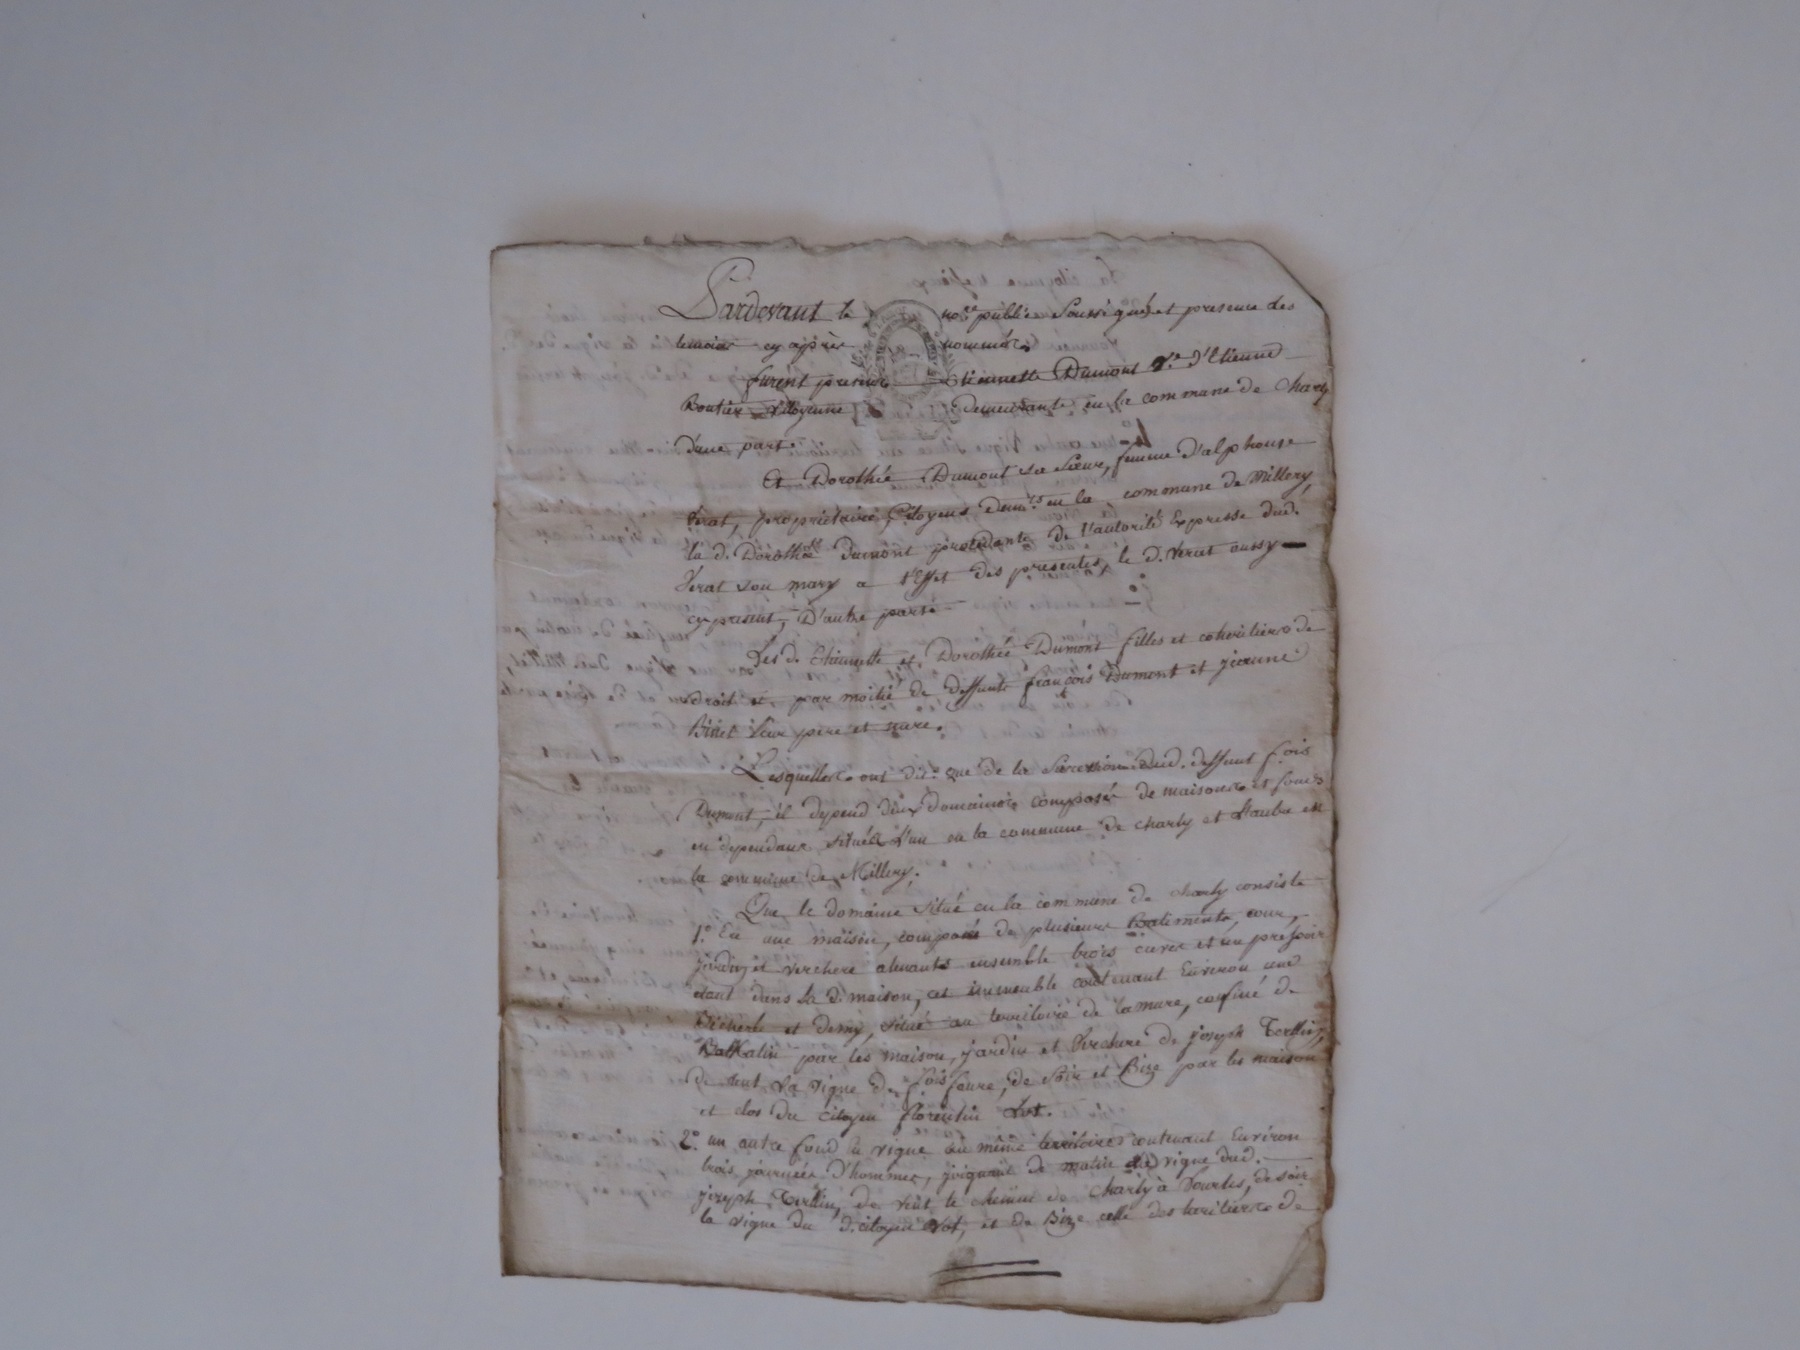 Pardevant le no.re public Soussigné, et presence des
temoins cy après nommés.
furent presens Etiennette Dumont V.e d'Etienne
Boutier Citoyenne Demeurante en la commune de Charly
D'une part.
Et Dorothée Dumont sa Sœur, femme d'alphonse
Verat, propriétaire, Citoyens Dem.ts en la commune de Millery,
la d. Dorothée Dumont procedante de l'autorité Expresse dud.
Verat son mary a l'Effet des presentes, le d. Verat aussy
cy present, D'autre part.
Les d. Etiennette et Dorothée Dumont filles et coheritieres de
droit et par moitié de deffunts françois Dumont et jeanne
Binet leur pere et mere.
Lesquelles ont dit que de la Succession dud. deffunt f.ois
Dumont, il depend deux domaines composés de maisons et fonds
en dependans situés l'un en la commune de Charly et l'autre en
la commune de Millery.
Que le domaine situé en la commune de Charly consiste
1.o En une maison, composée de plusieurs Batiments, cour,
jardin et verchere atenants ensemble trois cuves et un pressoir
étant dans la d. maison, cet immeuble contenant Environ une
Bicherée et demy, situé au territoire de lamure, confiné de
matin par les maison, jardin et Verchere de joseph Terllin,
de vent la vigne de f.ois faure, de soir et Bize par les maison
et clos du citoyen florentin Vot.
2.o un autre fond de vigne au même territoire contenant Environ
trois journées D'hommes, joignant de matin la vigne dud.
joseph Terllin, de vent le chemin de Charly à Vourles, de soir
la vigne du d. citoyen Vot, et de Bize celle des heritiers de